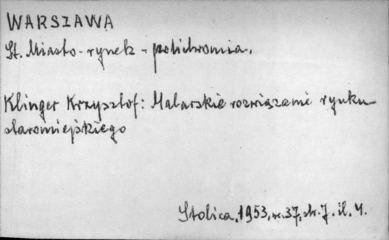 WARSZAWA
St. Miasto - rynek - polichromia.
Klinger Krzysztof: Malarskie rozwiązanie rynku
staromiejskiego
Stolica, 1953, nr. 37, str. 7. il. 4.